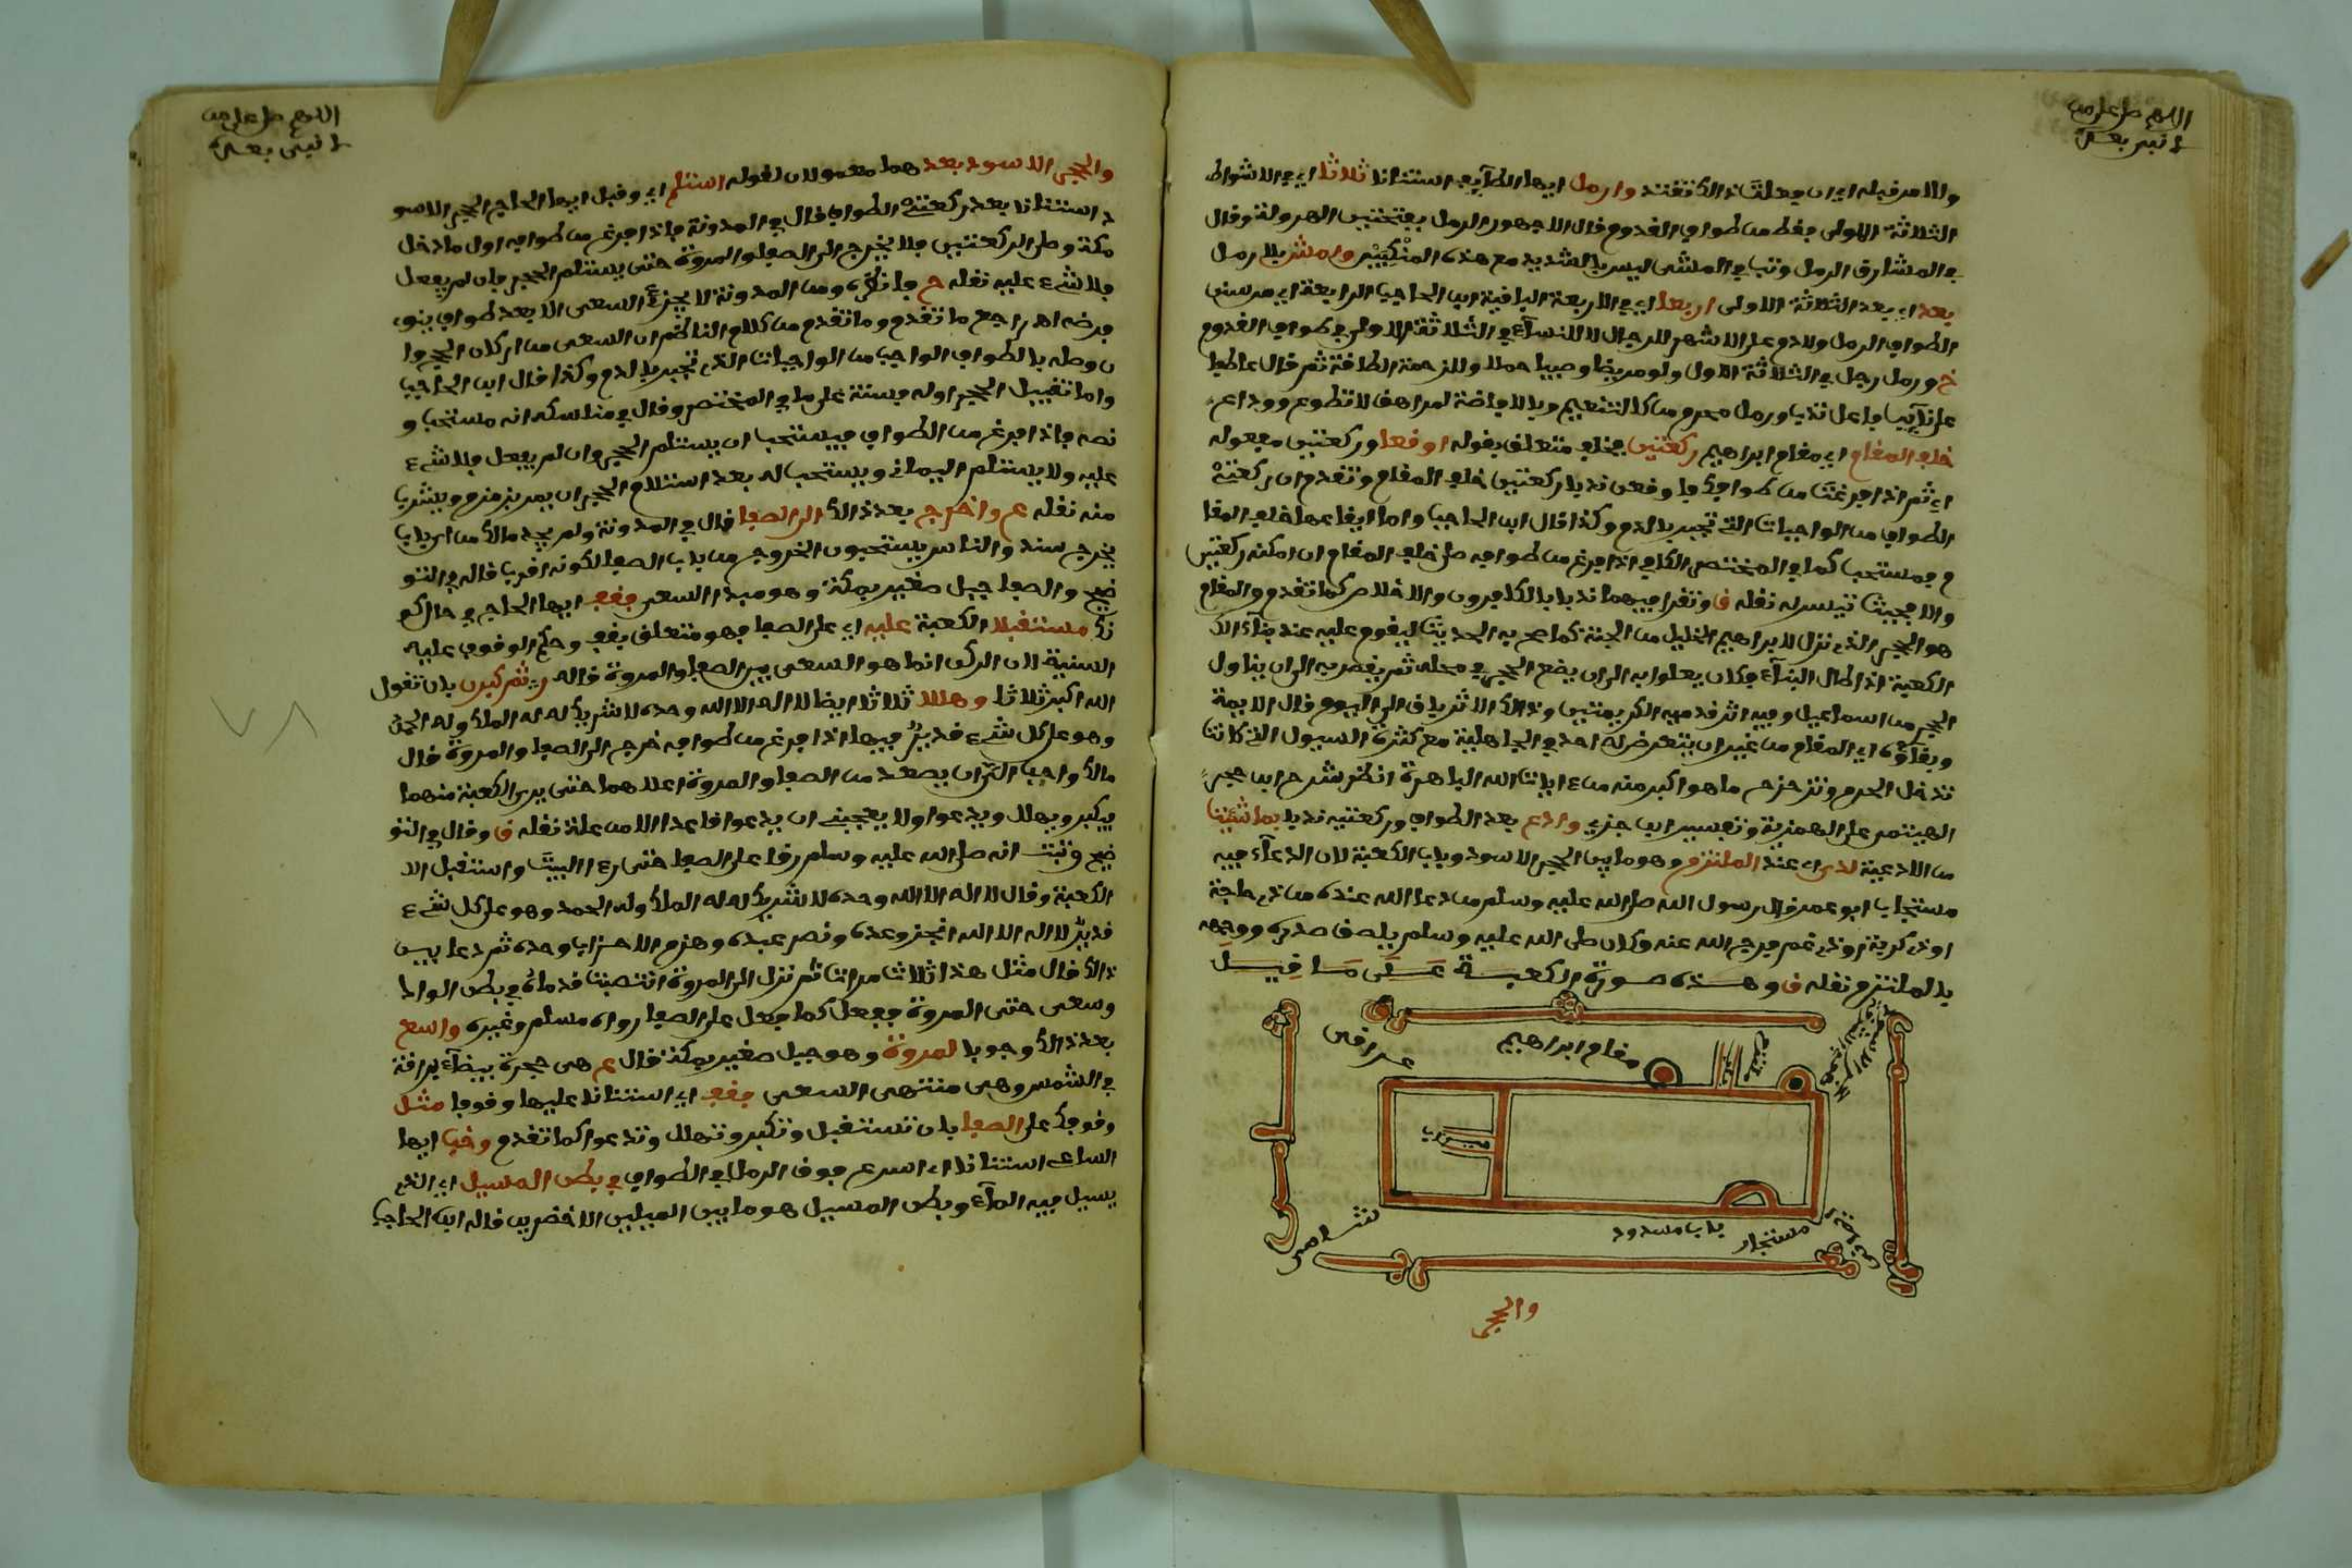 اللهم صل على من
لا نبي بعده
والامر قبله اي ان فعلت ذالك تقتد وارمل ايها الطآيف استنانا ثلاثا اي في الاشواط
الثلاثة الاولى فقط من طواف القدوم قال الاجهور الرمل بفتحتين الهرولة وقال
في المشارق الرمل وثب في المشي ليس بالشديد مع هذه المنكبين وامش بلا رمل
بعد اي بعد الثلاثة الاولى اربعا اي في الاربعة الباقية ابن الحاجب الرابعة اي من سنن
الطواف الرمل ولا دم على الاشهر للرجال لا للنسآء في الثلاثة الاولى في طواف القدوم
خ ورمل رجل في الثلاثة الاول ولو مريضا وصبيا حملا وللزحمة الطاقة ثم قال عاطفا
على نآيب فاعل ندب ورمل محرم من كالتنعيم وبالافاضة لمراهق لا تطوع ووداع
خلف المقام اي مقام ابراهيم ركعتين فخلف متعلق بقوله اوقعا وركعتين مفعوله
اي ثم اذا فرغت من طوافك فاوقعن ندبا ركعتين خلف المقام وتقدم ان ركعتي
الطواف من الواجبات التي تجبر بالدم وكذا قال ابن الحاجب واما ايقاعها خلف المقا
م فمستحب كما في المختصر الكافي اذا فرغ من طوافه صلى خلف المقام ان امكنه ركعتين
والا فحيث تيسر له نقله ق وتقرا فيهما ندبا بالكافرون والاخلاص كما تقدم والمقام
هو الحجر الذي نزل لابراهيم الخليل من الجنة كما صح به الحديث ليقوم عليه عند بنآء الك
الكعبة اذا طال البنآء فكان يعلوا به الى ان يضع الحجر في محله ثم يقصر به الى ان يناول
الحجر من اسماعيل وفيه اثر قدميه الكريمتين وذالك الاثر باق الى اليوم قال الايمة
وبقاؤه اي المقام من غير ان يتعرض له احد في الجاهلية مع كثرة السيول التي كانت
تدخل الحرم وتزحزح ما هو اكبر منه من ءايات الله الباهرة انظر شرح ابن حجر
الهيتمي على الهمزية وتفسير ابن جزي وادع بعد الطواف وركعتيه ندبا بما شئت
من الادعية لدى اي عند الملتزم وهو ما بين الحجر الاسود وباب الكعبة لان الدعآء فيه
مستجاب ابو عمر قال رسول الله صلى الله عليه وسلم من دعا الله عنده من ذي حاجة
اوذي كربة اوذي غم فرج الله عنه وكان صلى الله عليه وسلم يلصق صدره ووجهه
بالملتزم نقله ق وهذه صورة الكعبة على ما قيل
عراقي
مقام ابراهيم
باب
ملتزم
الحجر الاسود
ميزاب
شامي
باب مسدود
مستجار
والحجر
اللهم صل على من
لا نبي بعده
والحجر الاسود بعد هما معمولان لقوله استلم اي وقبل ايها الحاج الحجر الاسو
د استنانا بعد ركعتي الطواف قال في المدونة فاذا فرغ من طوافه اول ما دخل
مكة وصلى الركعتين فلا يخرج الى الصفا والمروة حتى يستلم الحجر فان لم يفعل
فلا شيء عليه نقله ح فانظره ومن المدونة لا يجزئ السعي الا بعد طواف ينوي
فرضه اهـ راجع ما تقدم وما تقدم من كلام الناظم ان السعي من اركان الحج وا
ن وصله بالطواف الواجب من الواجبات التي تجبر بالدم وكذا قال ابن الحاجب
واما تقبيل الحجر اوله فسنة على ما في المختصر وقال في مناسكه انه مستحب و
نصه فاذا فرغ من الطواف فيستحب ان يستلم الحجر وان لم يفعل فلا شيء
عليه ولا يستلم اليماني ويستحب له بعد استلام الحجر ان يمر بزمزم ويشرب
منه نقله م واخرج بعد ذالك الى الصفا قال في المدونة ولم يحد مالك من اي باب
يخرج سند والناس يستحبون الخروج من باب الصفا لكونه اقرب قاله في التو
ضيح والصفا جبل صغير بمكة وهو مبدا السعي فقف ايها الحاج في حال كو
نك مستقبلا الكعبة عليه اي على الصفا فهو متعلق بقف وحكم الوقوف عليه
السنية لان الركن انما هو السعي بين الصفا والمروة قاله ر ثم كبرن بان تقول
الله اكبر ثلاثا وهللا ثلاثا ايضا لا اله الا الله وحده لا شريك له له الملك وله الحمد
وهو على كل شيء قدير فيها اذا فرغ من طوافه خرج الى الصفا والمروة قال
مالك واحب الي ان يصعد من الصفا والمروة اعلاهما حتى يرى الكعبة منهما
فيكبر ويهلل ويدعوا ولا يعجبني ان يدعوا قاعدا الا من علة نقله ق وقال في التو
ضيح وثبت انه صلى الله عليه وسلم رقا على الصفا حتى رءا البيت واستقبل الا
الكعبة وقال لا اله الا الله وحده لا شريك له له الملك وله الحمد وهو على كل شيء
قدير لا اله الا الله انجز وعده ونصر عبده وهزم الاحزاب وحده ثم دعا بين
ذالك قال مثل هذا ثلاث مرات ثم نزل الى المروة انتصبت قدماه في بطن الواد
وسعى حتى المروة ففعل كما فعل على الصفا رواه مسلم وغيره واسع
بعد ذالك وجوبا لمروة وهو جبل صغير بمكة قال م هي حجرة بيضآء براقة
في الشمس وهي منتهى السعي فقف اي استنانا عليها وقوفا مثل
وقوفك على الصفا بان تستقبل وتكبر وتهلل وتدعوا كما تقدم وخب ايها
الساعي استنانا اي اسرع فوق الرمل في الطواف في بطن المسيل اي الذي
يسيل فيه المآء وبطن المسيل هو ما بين الميلين الاخضرين قاله ابن الحاجب